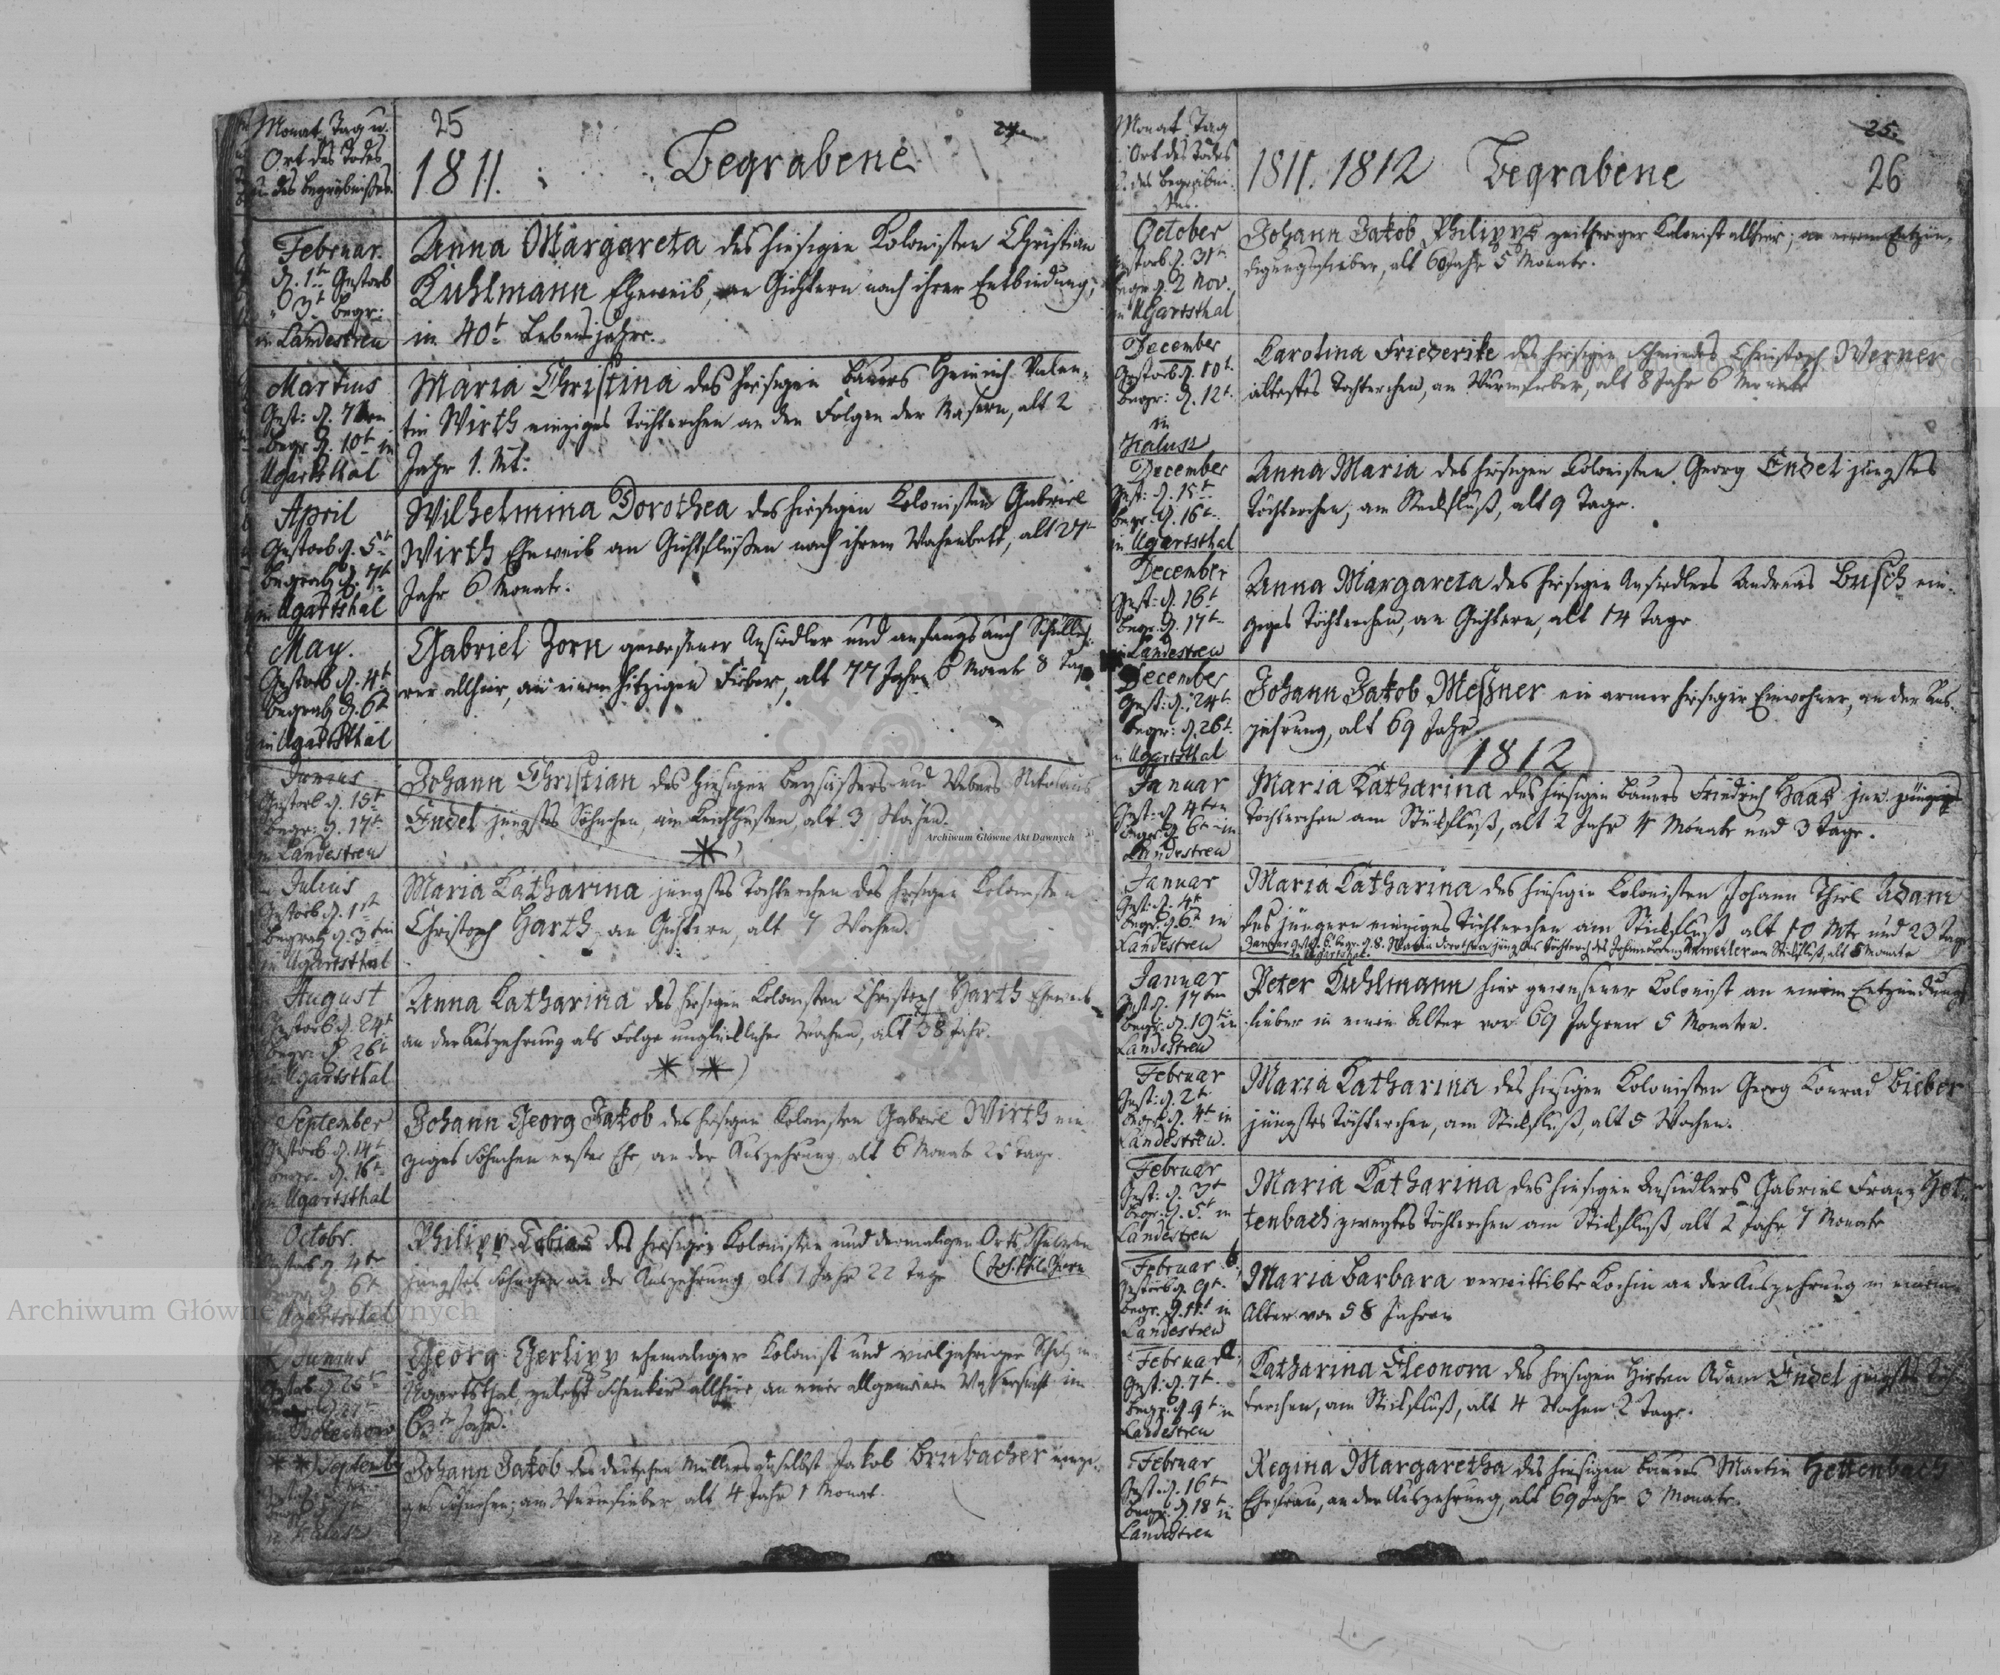 Monat, Tag u.
Ort des Todes
u. des Begräbnißes.
25
24.
1811. Begrabene
Februar.
d. 1t Gestorb
d 3t begr:
in Landestreu
Anna Margareta des hiesigen Kolonisten Christian
Kuhlmann Eheweib, an Gichtern nach ihrer Entbindung,
in 40t Lebensjahre.
Martius
Gest: d. 7ten
begr. d. 10t in
Ugartsthal
Maria Christina des hiesigen Bauers Heinrich Valen-
tin Wirth einziges Töchterchen an den Folgen der Masern, alt 2
Jahr 1. Mt:
April
Gestorb d. 5t
Begrab d. 7t
in Ugartsthal
Wilhelmina Dorothea des hiesigen Kolonisten Gabriel
Wirth Eheweib an Gichtflüßen nach ihrem Wochenbett, alt 27
Jahr 6 Monate.
May.
Gestorb d. 4t
begrab d. 6t
in Ugartsthal
Gabriel Zorn gewesener Ansiedler und anfangs auch Schulleh-
rer allhier, an einem hitzigen Fieber, alt 77 Jahre 6 Monate 8 Tage
Junius
Gestorb d. 15t
begr: d. 17t
in Landestreu
Johann Christian des hiesigen Beysaßers und Webers Nikolaus
Endel jüngstes Söhnchen, am Keichhusten, alt 3 Wochen.
*)
Julius
Gestorb d. 1st
begrab d. 3ten
in Ugartsthal
Maria Katharina jüngstes Töchterchen des hiesigen Kolonisten
Christoph Harth, an Gichtern, alt 7 Wochen.
August
Gestorb d. 24t
begr: d. 26t
in Ugartsthal
Anna Katharina des hiesigen Kolonisten Christoph Harth Eheweib
an der Auszehrung als Folge unglücklicher Wochen, alt 38 Jahr.
* *)
September
Gestorb d. 14t
begr. d. 16t
in Ugartsthal
Johann Georg Jakob des hiesigen Kolonisten Gabriel Wirth ein-
ziges Söhnchen erster Ehe, an der Auszehrung, alt 6 Monate 25 Tage.
Octobr.
Gestorb d. 4te
d 6t
Ugartsthal
Philipp Tobias des hiesigen Kolonisten und dermaligen Orts
jüngstes Söhnchen an der Auszehrung alt 1 Jahr 22 Tage (Joh. Phil. Zorn
*) Junius
Gestorb d 25t
d 27t
in Bolechow
Georg Gerlipp ehemaliger Kolonist und vieljähriger Schulz in
Ugartsthal, zuletzt Schenker allhier, an einer allgemeinen Wassersucht im
63te Jahr.
* *) Septemb
in Kalusz
Johann Jakob des deutschen Müllers daselbst Jakob Brubacher einzi-
ges Söhnchen, am Wurmfieber alt 4 Jahr 1 Monat.
Monat, Tag
Ort des Todes
u. des Begräbni-
ßes.
25.
1811. 1812 Begrabene 26
October
gestorb d. 31t
begr d. 2 Nov.
in Ugartsthal
Johann Jakob Philipps zeitheriger Kolonist allhier, an einem Entzün-
dungsfieber, alt 60 Jahr 5 Monate.
December
Gestorb d. 10t
begr: d. 12t
in
Kalusz
Karolina Friederike des hiesigen Schmiedes Christoph Werner
ältestes Töchterchen, an Wurmfieber, alt 8 Jahr 6 Monate
December
Gest: d. 15t
begr: d. 16t
in Ugartsthal
Anna Maria des hiesigen Kolonisten Georg Endel jüngstes
Töchterchen, am Steckfluß, alt 9 Tage.
December
Gest: d. 16t
begr. d. 17t
in Landestreu
Anna Margareta des hiesigen Ansiedlers Andreas Busch ein-
ziges Töchterchen, an Gichtern, alt 14 Tage
December
Gest: d. 24t
begr: d. 26t
in Ugartsthal
Johann Jakob Meßner ein armer hiesiger Einwohner, an der Aus-
zehrung, alt 69 Jahr
1812
Januar
Gest: d 4ten
begr d 6t in
Landestreu
Maria Katharina des hiesigen Bauers Friedrich Haas jun. jüngstes
Töchterchen am Stickfluß, alt 2 Jahr 4 Monate und 3 Tage.
Januar
Gest: d. 4t
Begr. d 6t in
Landestreu
Maria Katharina des hiesigen Kolonisten Johann Thiel Adam
des jüngern einziges Töchterchen am Stickfluß alt 10 Mte und 23 Tage
Januar gest. d. 6. begr. d. 8. Maria Dorothea jüngstes Töchterch des am Stickfluß, alt 5 Monate
in Ugartsthal.
Januar
Gest d. 17ten
begr. d. 19t in
Landestreu
Peter Kuhlmann hier gewesener Kolonist an einem Entzündungs-
fieber in einem Alter von 69 Jahren 5 Monaten.
Februar
Gest: d. 2t
begr. d. 4t in
Landestreu.
Maria Katharina des hiesigen Kolonisten Georg Konrad Bieber
jüngstes Töchterchen, am Stickfluß, alt 5 Wochen.
Februar
Gest: d. 3t
begr. d. 5t in
Landestreu
Maria Katharina des hiesigen Ansiedlers Gabriel Franz Het-
tenbach zweytes Töchterchen am Stickfluß, alt 2 Jahr 7 Monate
Februar b.
Gestorb d. 9t
begr. d. 11t in
Landestreu
Maria Barbara verwittibte Kochin an der Auszehrung in einem
Alter von 58 Jahren
Februar a.
Gest: d. 7t
begr. d 9t in
Landestreu
Katharina Eleonora des hiesigen Hirten Adam Endel jüngstes Töch-
terchen, am Stickfluß, alt 4 Wochen 2 Tage.
Februar
Gest. d. 16t
begr. d. 18t in
Landestreu
Regina Margaretha des hiesigen Bauers Martin Hettenbach
Ehefrau, an der Auszehrung, alt 69 Jahr 3 Monate.
Archiwum Główne Akt Dawnych
Archiwum Główne Akt Dawnych
Archiwum Główne Akt Dawnych